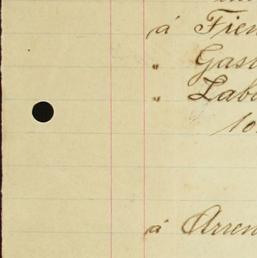 á Fien
" Gast
" Labo
10
á Arren